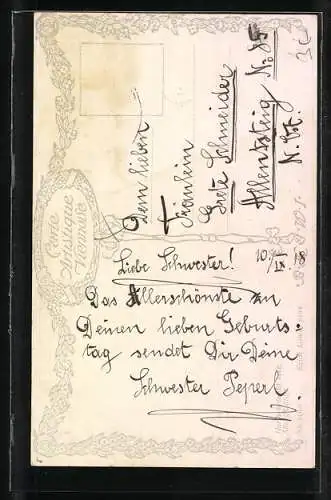 Carte
Artistique
Viennoise
Dem lieben
Fräulein
Grete Schneider
Allentsteig No. 85
N. Öst.
3€
Liebe Schwester! 10./IX. 18
Das Allerschönste zu
Deinen lieben Geburts:
tag sendet Dir Deine
Schwester Peperl